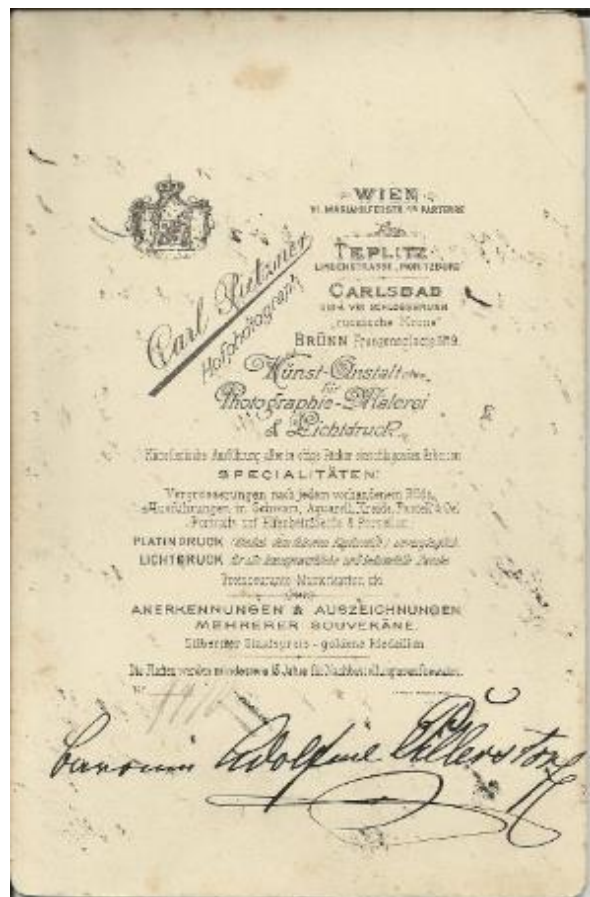 WIEN
VI. MARIAHILFERSTR. PARTERRE
TEPLITZ
LINDENSTRASSE, "MORITZBURG"
CARLSBAD
VIS-À-VIS SCHLOSSBRUNN
"russische Krone"
BRÜNN
Carl Pietzner
Hofphotograph
Kunst-Anstalt
für
Photographie-Malerei
& Lichtdruck
Künstlerische Ausführung aller in obige Fächer einschlagenden Arbeiten
SPECIALITÄTEN:
Vergrösserungen nach jedem vorhandenem Bilde,
Ausführungen in Schwarz, Aquarell, Kreide, Pastell & Oel
Portraits auf Elfenbein & Porzellan
PLATINDRUCK
LICHTDRUCK für alle kunstgewerbliche und industrielle Zwecke
Musterkarten etc.
ANERKENNUNGEN & AUSZEICHNUNGEN
MEHRERER SOUVERÄNE.
Silberner Staatspreis - goldene Medaillen
Die Platten werden mindestens 15 Jahre für Nachbestellungen aufbewahrt.
Nr.
Baronin Adolfine Pillerstorf